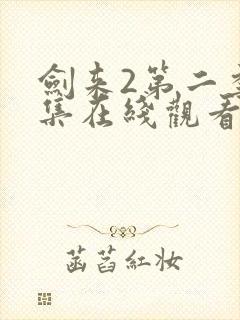 劍來2第二季
集在綫觀看
菡萏紅妝